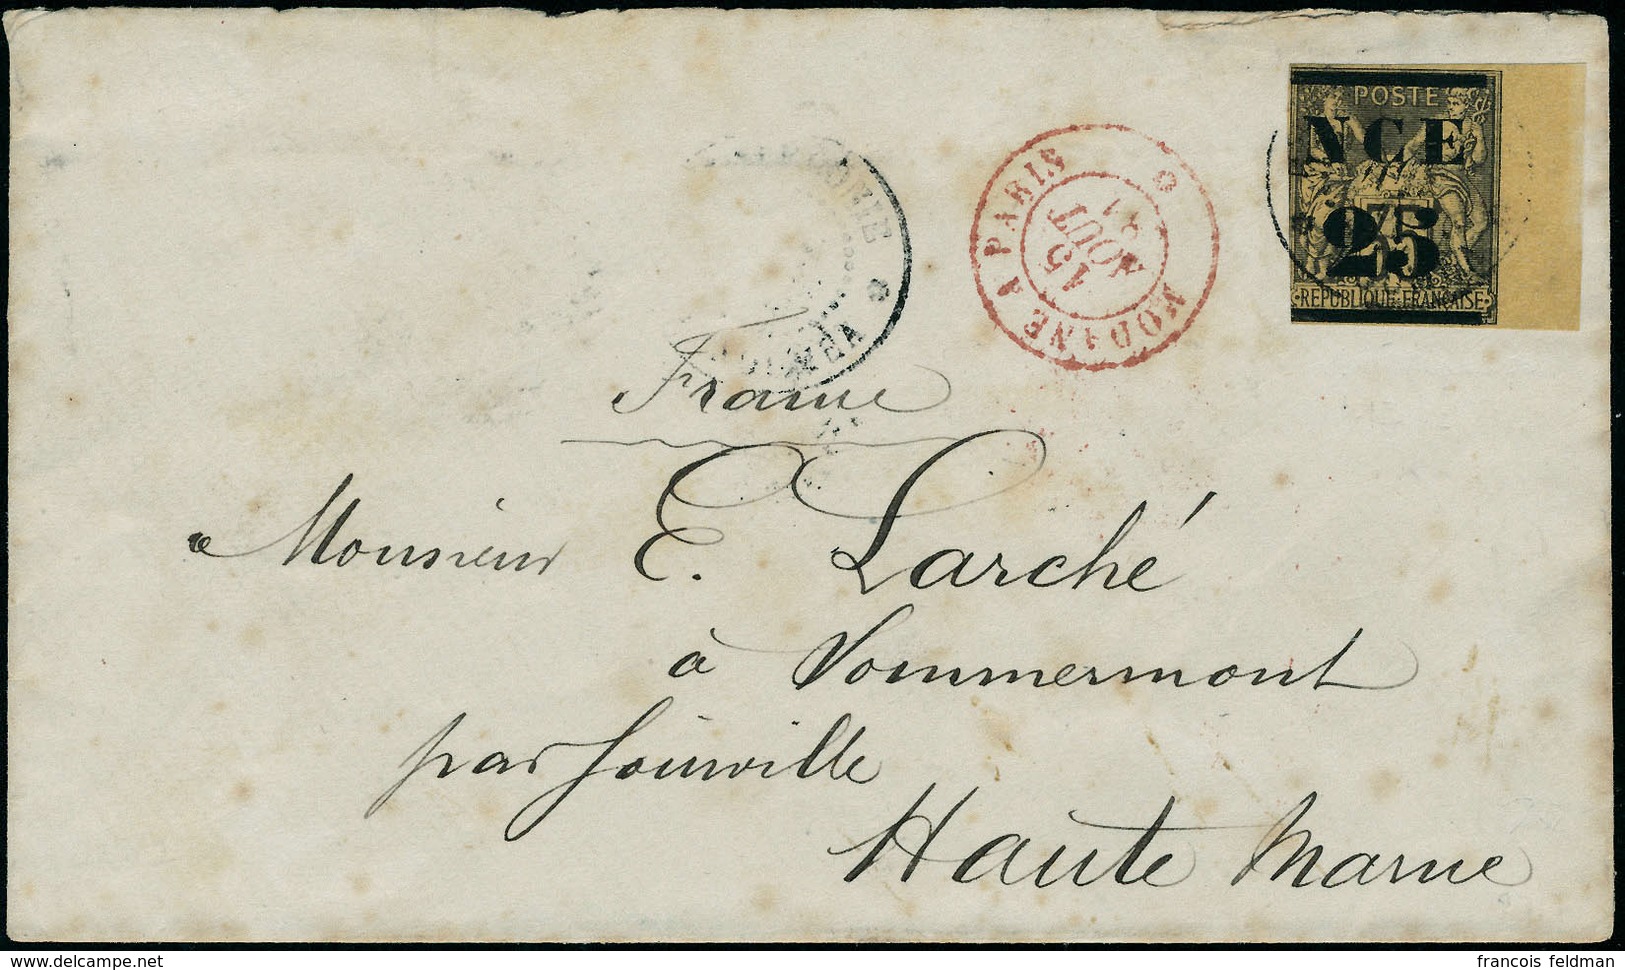 POSTE
NCE
25
RÉPUBLIQUE FRANÇAISE
MODANE A PARIS
15
AOUT
81
France
Monsieur E. Larché
à Sommermont
par Joinville
Haute Marne
www.delcampe.net
francois feldman